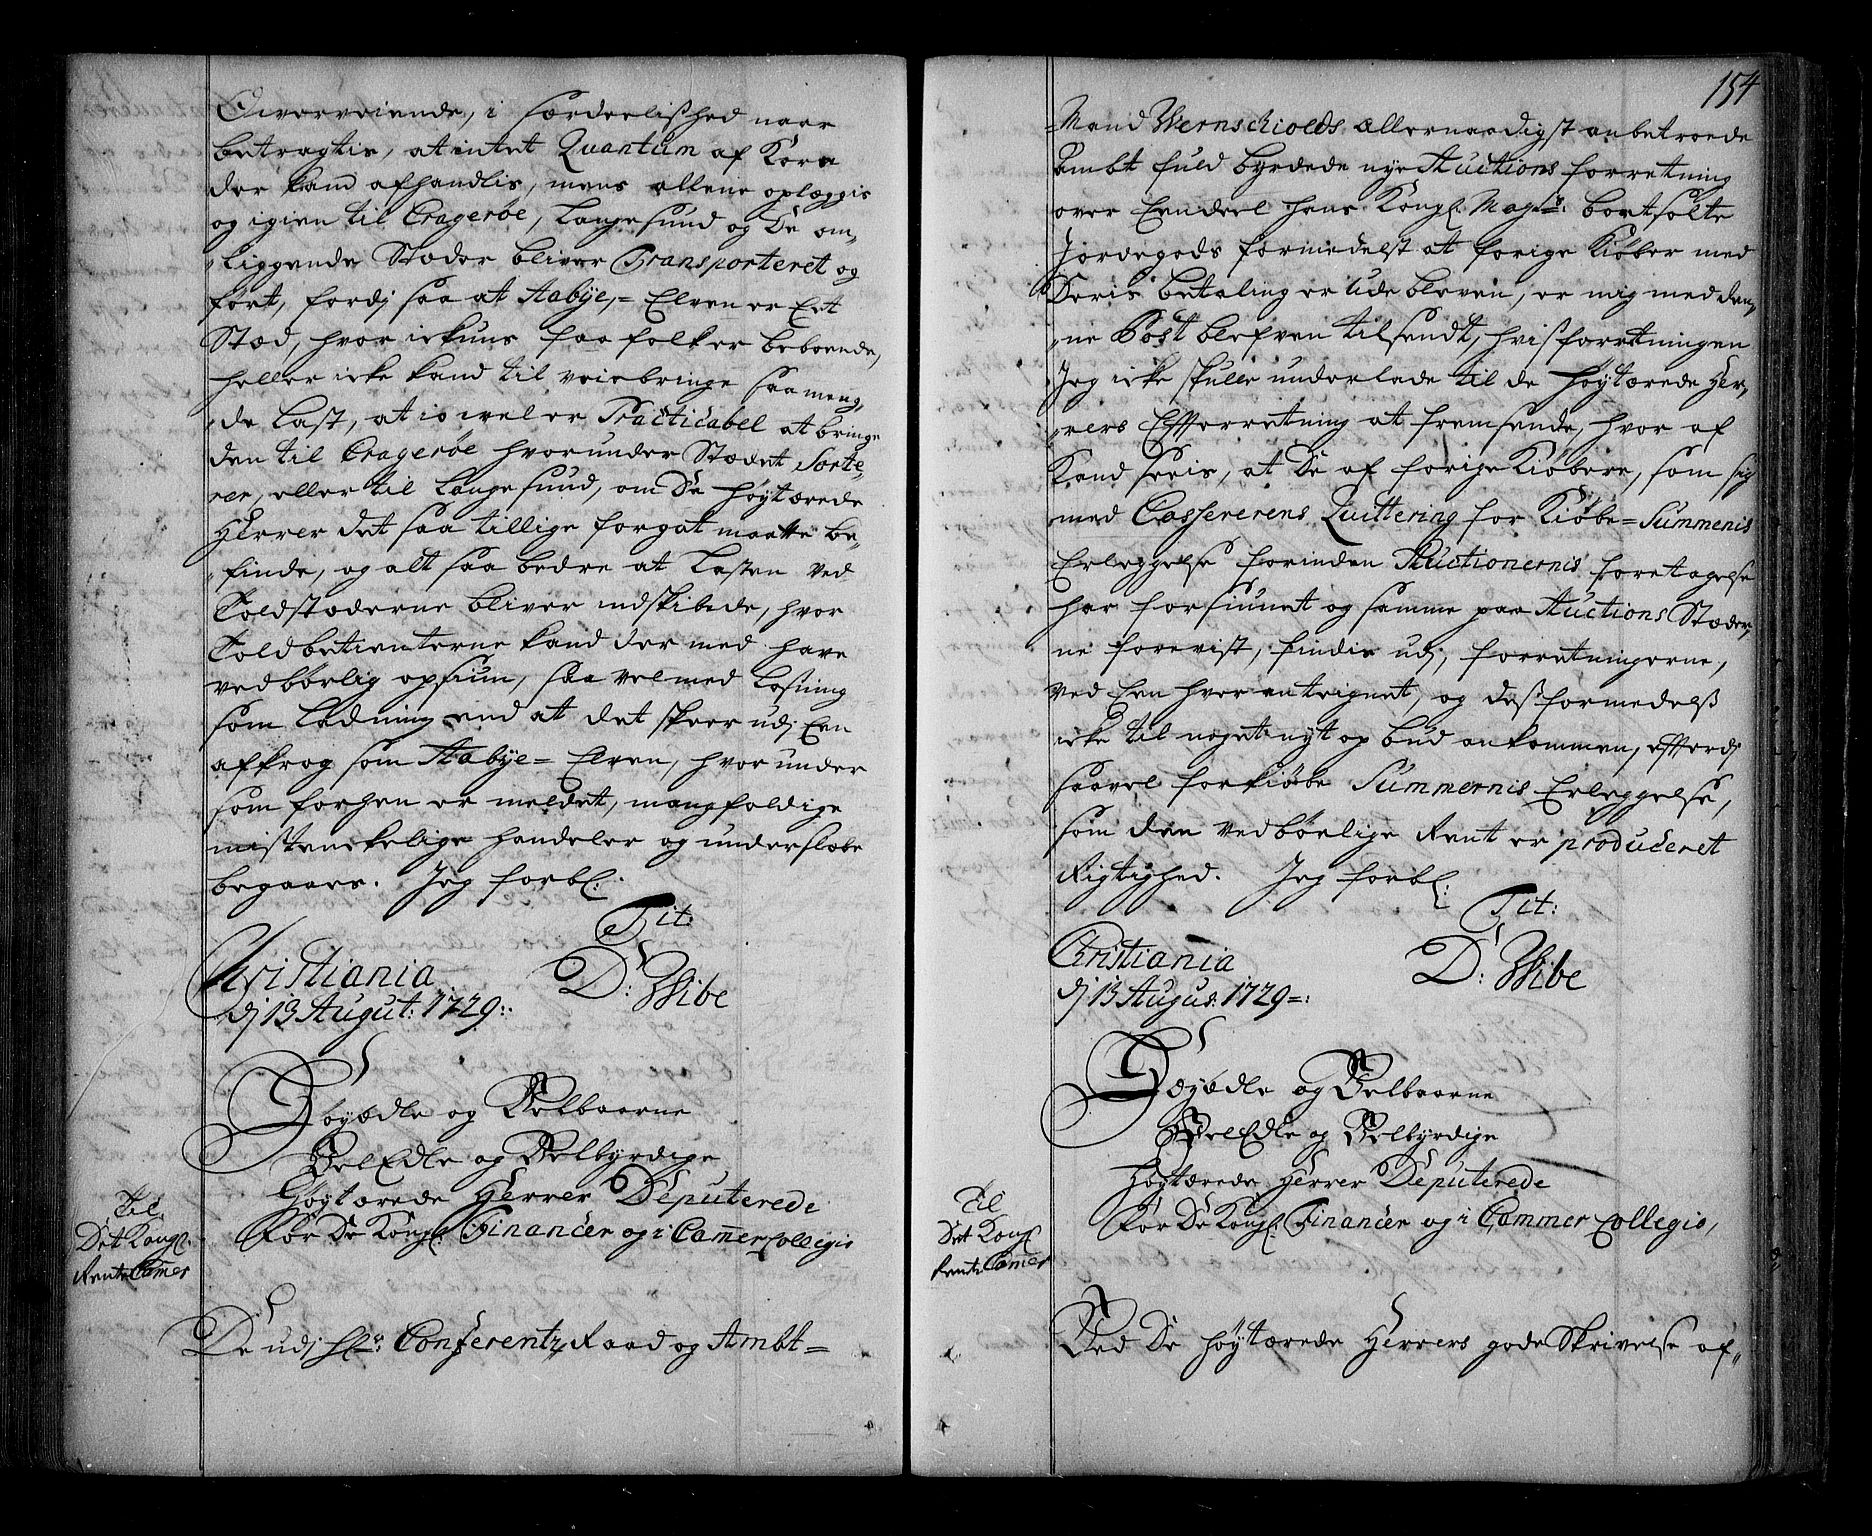 Overveiende, i særdeelished naar
betragtis, at intet Quantum af Korn
der kand afhandlis, mens allene oplæggis
og igien til Cragerøe, Langesund og de om-
liggende Stæder bliver Transporteret og
ført, fordj saa at Aabÿe-Elven er Eet
Stæd, hvor ickuns faa folk er beboende,
heller icke kand til veiebringe saa meng-
de Last, at io vel er Practicabel at bringe
den til Cragerøe hvorunder Stædet Sorte-
rer, eller til Langesund, om De høÿtærede
Herrer det saa tillige forgot maatte be-
finde, og alt saa bedre at Lasten ved
Toldstæderne bliver indskibede, hvor
Toldbetienterne kand der med have
vedbørlig opsiun, saa vel med Losning
som Ladning end at det skeer udj Een
afkrog som Aabÿe-Elven, hvor under
som forhen er meldet, mangfoldige
mistenckelige handeler og underslæbe
begaaes. Jeg forbl:
Tit:
Christiania D: Wibe
dj 13 August: 1729:
Høÿædle og Velbaarne
VelEdle og Velbÿrdige
Høÿtærede Herrer Deputerede
For De Kongl. Financer og i Cammer Collegio
Til
Det Kongl.
Rente Camer
De udj Hr: Conferentz Raad og Ambt-
154
-Mand Wernschiolds allernaadigst anbetroede
Ambt fuld bÿrdede nÿe Auctions forretning
over Eendeel hans Kongl. Mayts: bortsolte
Jordegods formedelst at forige Kiøber med
Deris betaling er ude bleven, er mig med den-
ne Post blefven tilsendt, hvis forretningen
Jeg icke skulle underlade til de høÿtærede Her-
rers Efterretning at fremsende, hvor af
Kand seeis, at De af forige Kiøbere, som sig
med Cassererens Qvittering for Kiøbe-Summenis
Erleggelse forinden Auctionernis foretagelse
har forsiunet og samme paa Auctions Stæder-
ne forevist, findis udj, forretningerne,
ved Een hver anteignet, og des formedelst
icke til noget nÿt op bud ankommen, efterdj
saavel for kiøbe Summernis Erleggelse,
som den vedbørlige Rent er produceret
Rigtighed. Jeg forbl:
Tit:
Christiania D: Wibe
dj 13 Augus: 1729:
Høÿædle og Velbaarne
VelEdle og Velbÿrdige
Høÿtærede Herrer Deputerede
For De Kongl. Financer og i Cammer Collegio,
Til
Det Kongl
Rente Camer
Ved De høÿtærede Herrers gode Skrivelse af